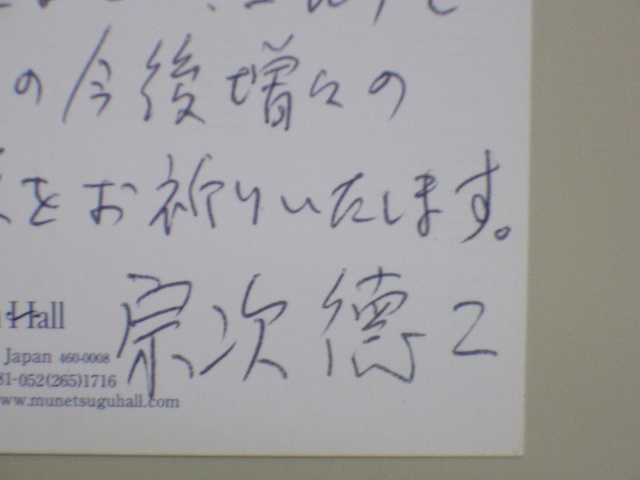 の今後増々の
をお祈りいたします。
宗次德二
Hall
Japan 460-0008
81-052(265)1716
www.munetsuguhall.com